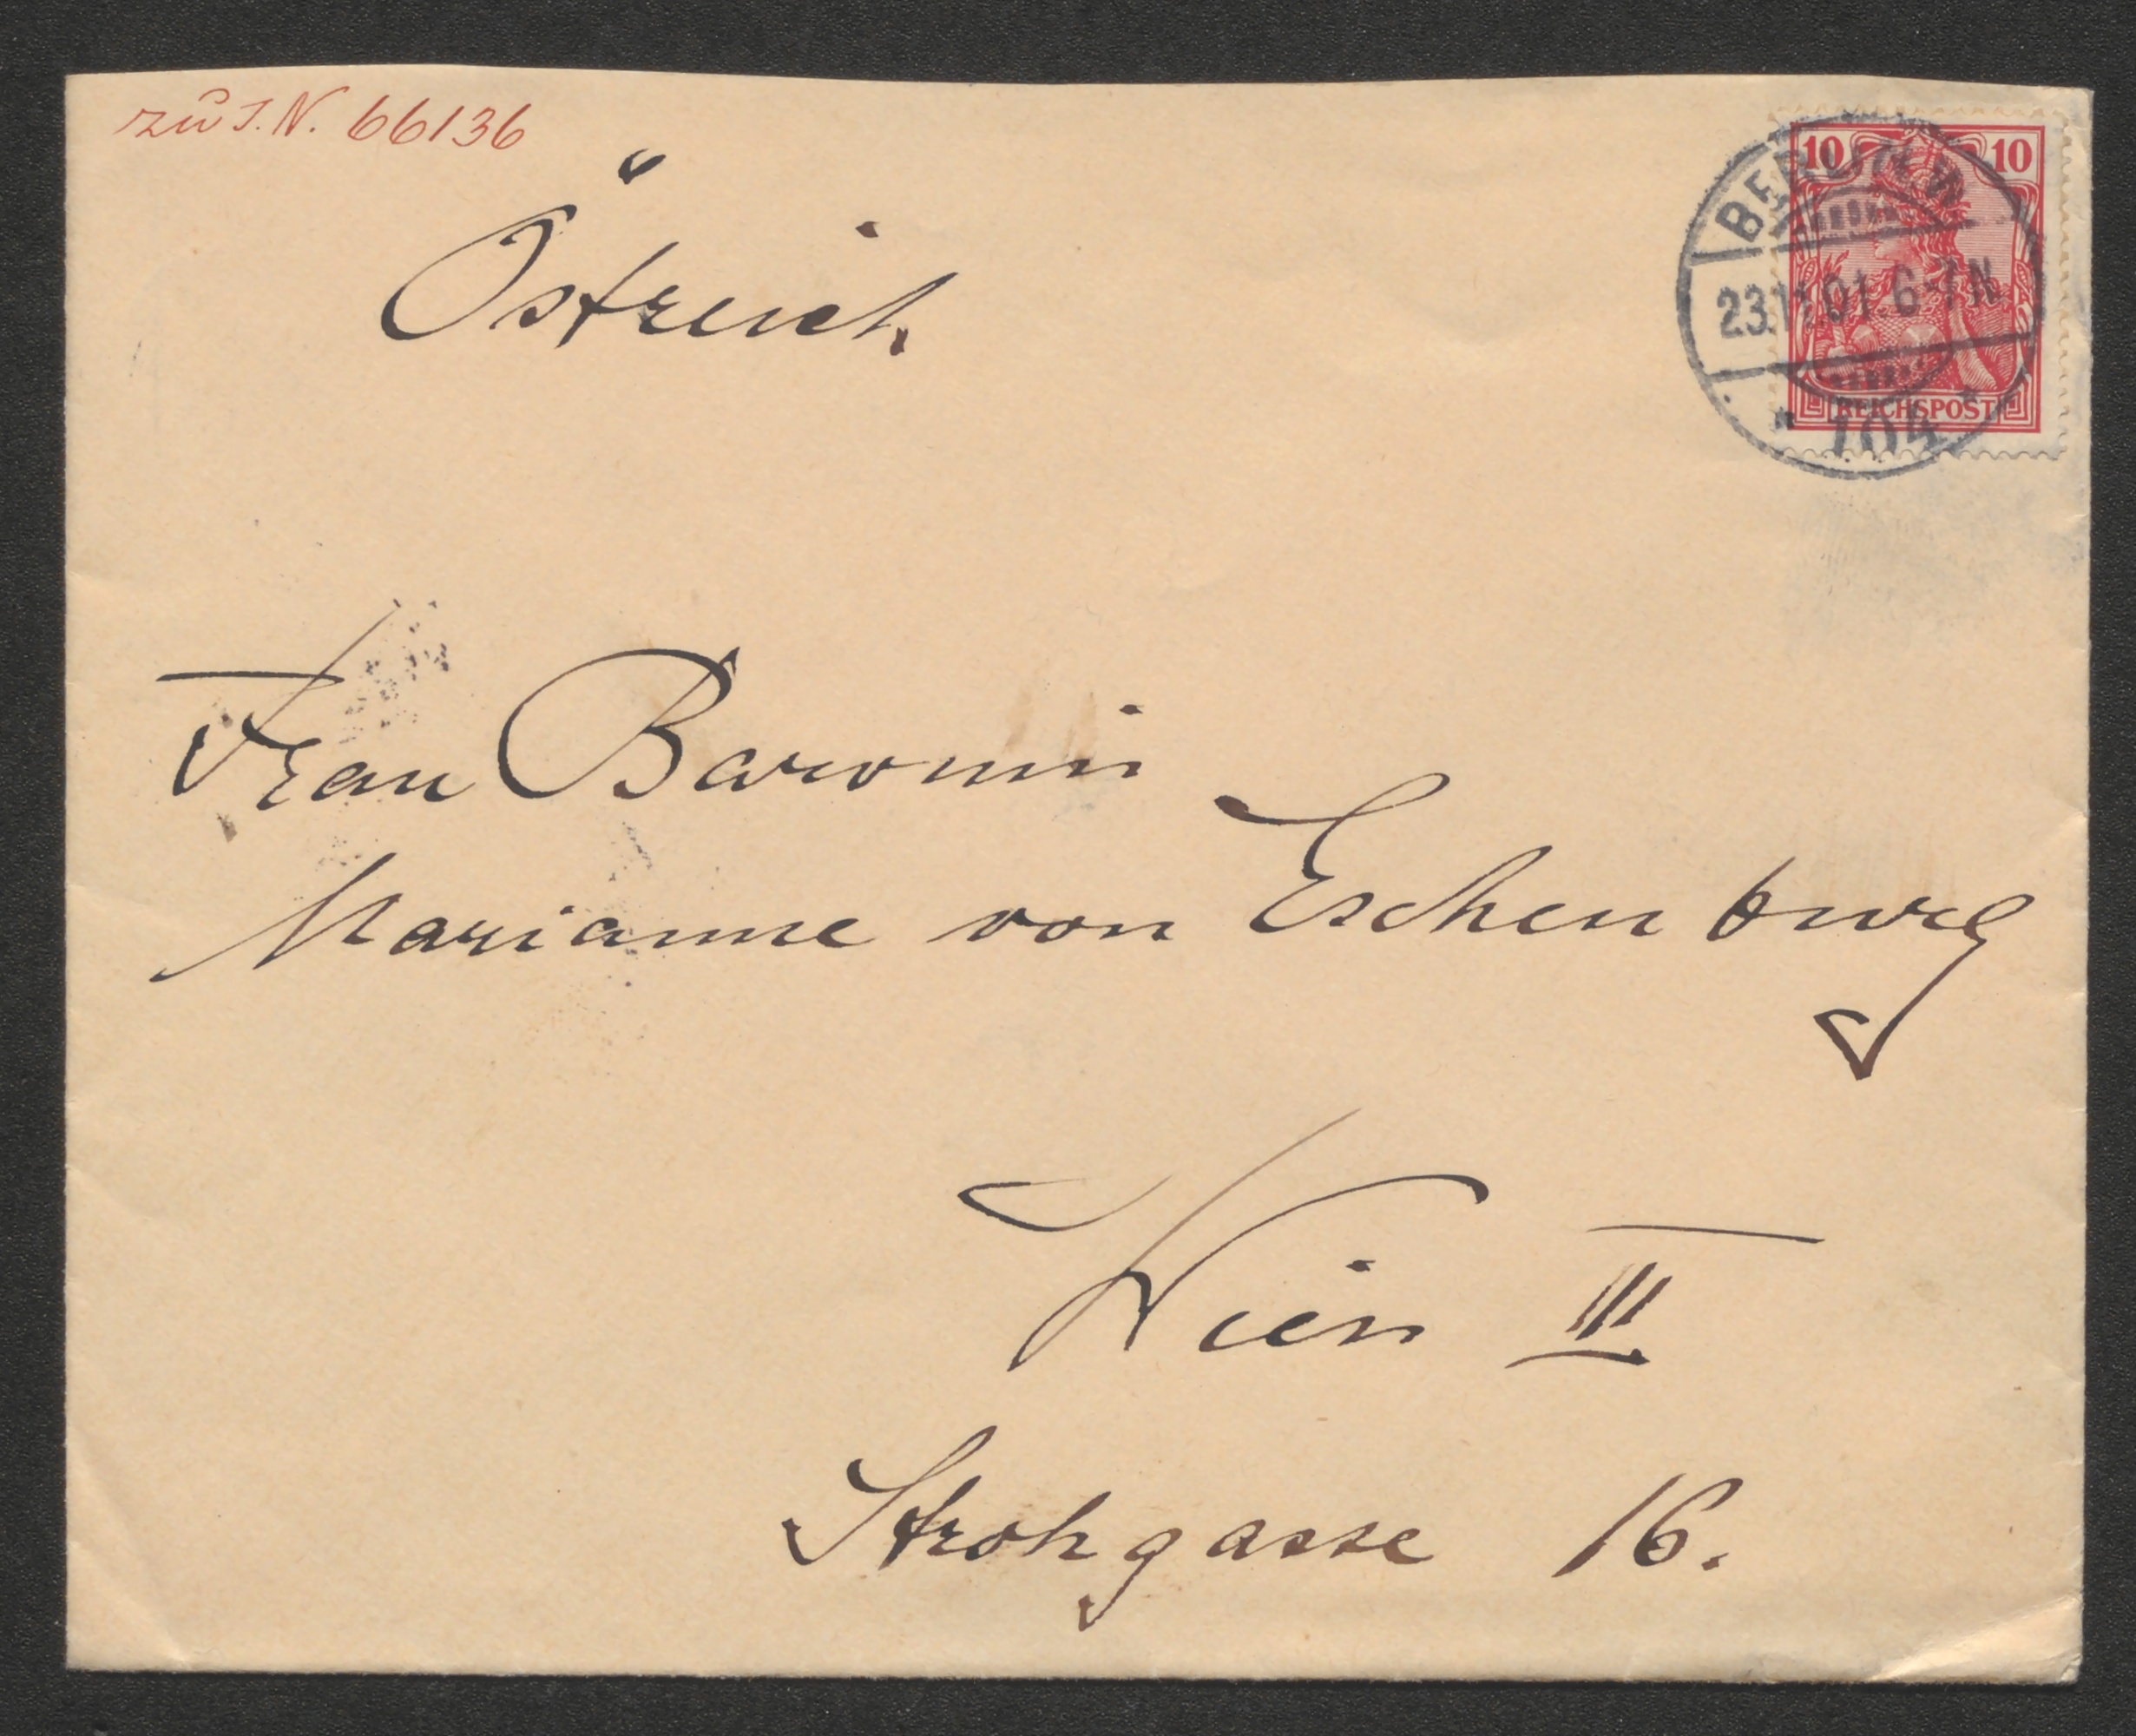 zu I.N. 66136
Östreich
10 10
BERLIN N.W.
23.11.01. 6-7N
REICHSPOST
* 104 *
Frau Baronin
Marianne von Eschenburg
Wien III
Strohgasse 16.